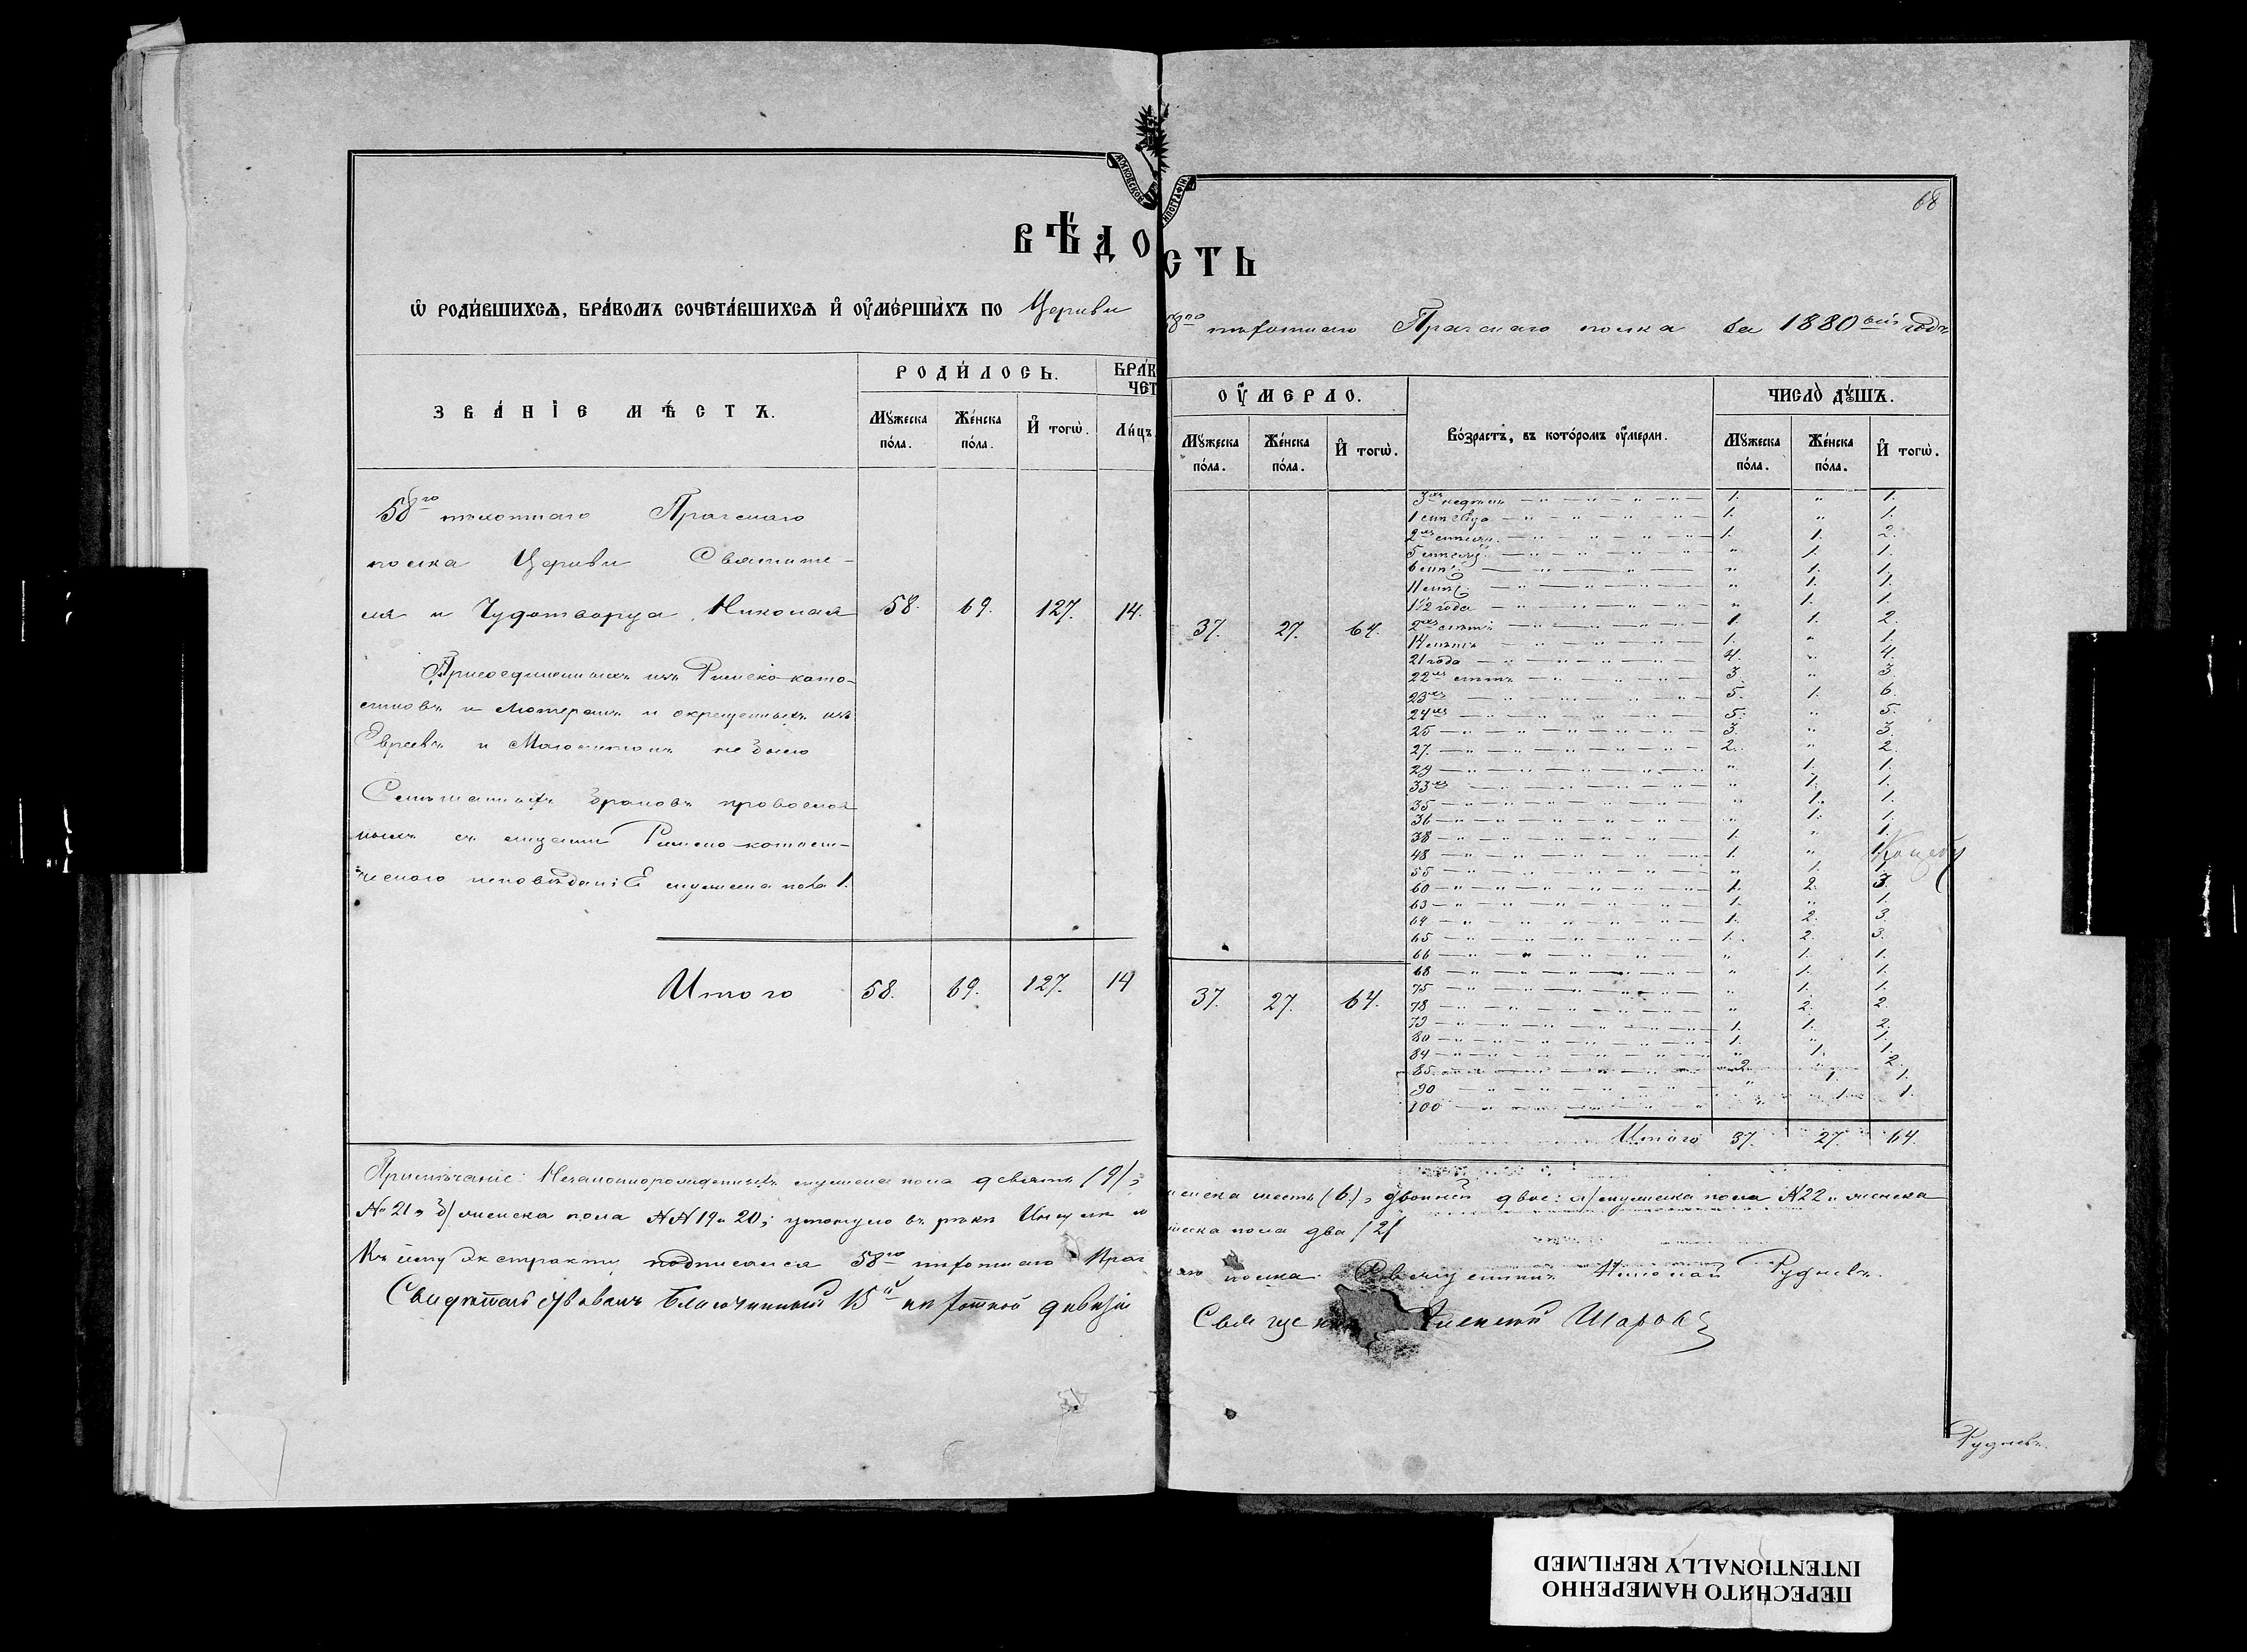 68
ВѢДО СТЬ
Ѡ РОДИВШИХСЯ, БРАКОМЪ СОЧЕТАВШИХСЯ И ОУМЕРШИХЪ ПО Церкви 58го пѣхотнаго Прагскаго полка за 1880ый годъ
ЗВАНІЕ МѢСТЪ.
РОДИЛОСЬ.
Мужеска пола.
Женска пола.
И тогѡ.
БРАК
ЧЕТ
Лицъ.
58го пѣхотнаго Прагскаго
полка Церкви Святите-
ля и Чудотворца Николая 58. 69. 127. 14.
Присоединенныхъ изъ Римско-като-
ликовъ и Лютеранъ и окрещенныхъ изъ
Евреевъ и Магометанъ не было
Смѣшанныхъ браковъ православ
ныхъ съ лицами Римско-католи-
ческаго исповѣданіе мужеска пола 1.
Итого 58. 69. 127. 14
ОУМЕРЛО.
Мужеска пола.
Женска пола.
И тогѡ.
37. 27. 64.
37. 27. 64.
Возрастъ, въ которомъ оумерли.
ЧИСЛО ДУШЪ.
Мужеска пола.
Женска пола.
И тогѡ.
3хъ недѣль 1. " 1.
1 мѣсяца 1. " 1.
2хъ мѣсяц. 1. 1. 2.
5 мѣсяц. " 1. 1.
6 мѣс. " 1. 1.
11 мѣс. " 1. 1.
1 1/2 года " 1. 1.
2хъ лѣтъ 1. 1. 2.
14 лѣтъ 1. " 1.
21 года 4. " 4.
22хъ лѣтъ 3. " 3.
23хъ 5. 1. 6.
24хъ 5. " 5.
25 3. " 3.
27. 2. " 2.
29 " 1. 1.
33хъ " 1. 1.
35 " 1. 1.
36 " 1. 1.
38 1. " 1.
48 1. " 1.
55 " 1. 1.
60 1. 2. 3.
63 1. " 1.
64 1. 2. 3.
65 1. 2. 3.
66 " 1. 1.
68 " 1. 1.
75 " 1. 1.
78 " 2. 2.
79 1. 1. 2.
80 1. " 1.
84 " 1. 1.
85 2. " 2.
90 " 1. 1.
100 " 1. 1.
Итого 37. 27. 64.
Примѣчаніе: Незаконнорожденныхъ мужеска пола девять (9), женска шесть (6), двойней двое: а) мужеска пола N22 и женска
№ 21 и б) женска пола NN 19 и 20; утонуло въ рѣкѣ Ингулѣ мужеска пола два (2)
Къ сему Экстракту подписался 58го пѣхотнаго Прагскаго полка Священникъ Николай Рудневъ.
Свидѣтельствовалъ Благочинный 15й пѣхотной дивизіи Священникъ Алексѣй Шаровъ
Рудневъ.
ПЕРЕСНЯТО НАМЕРЕННО
INTENTIONALLY REFILMED